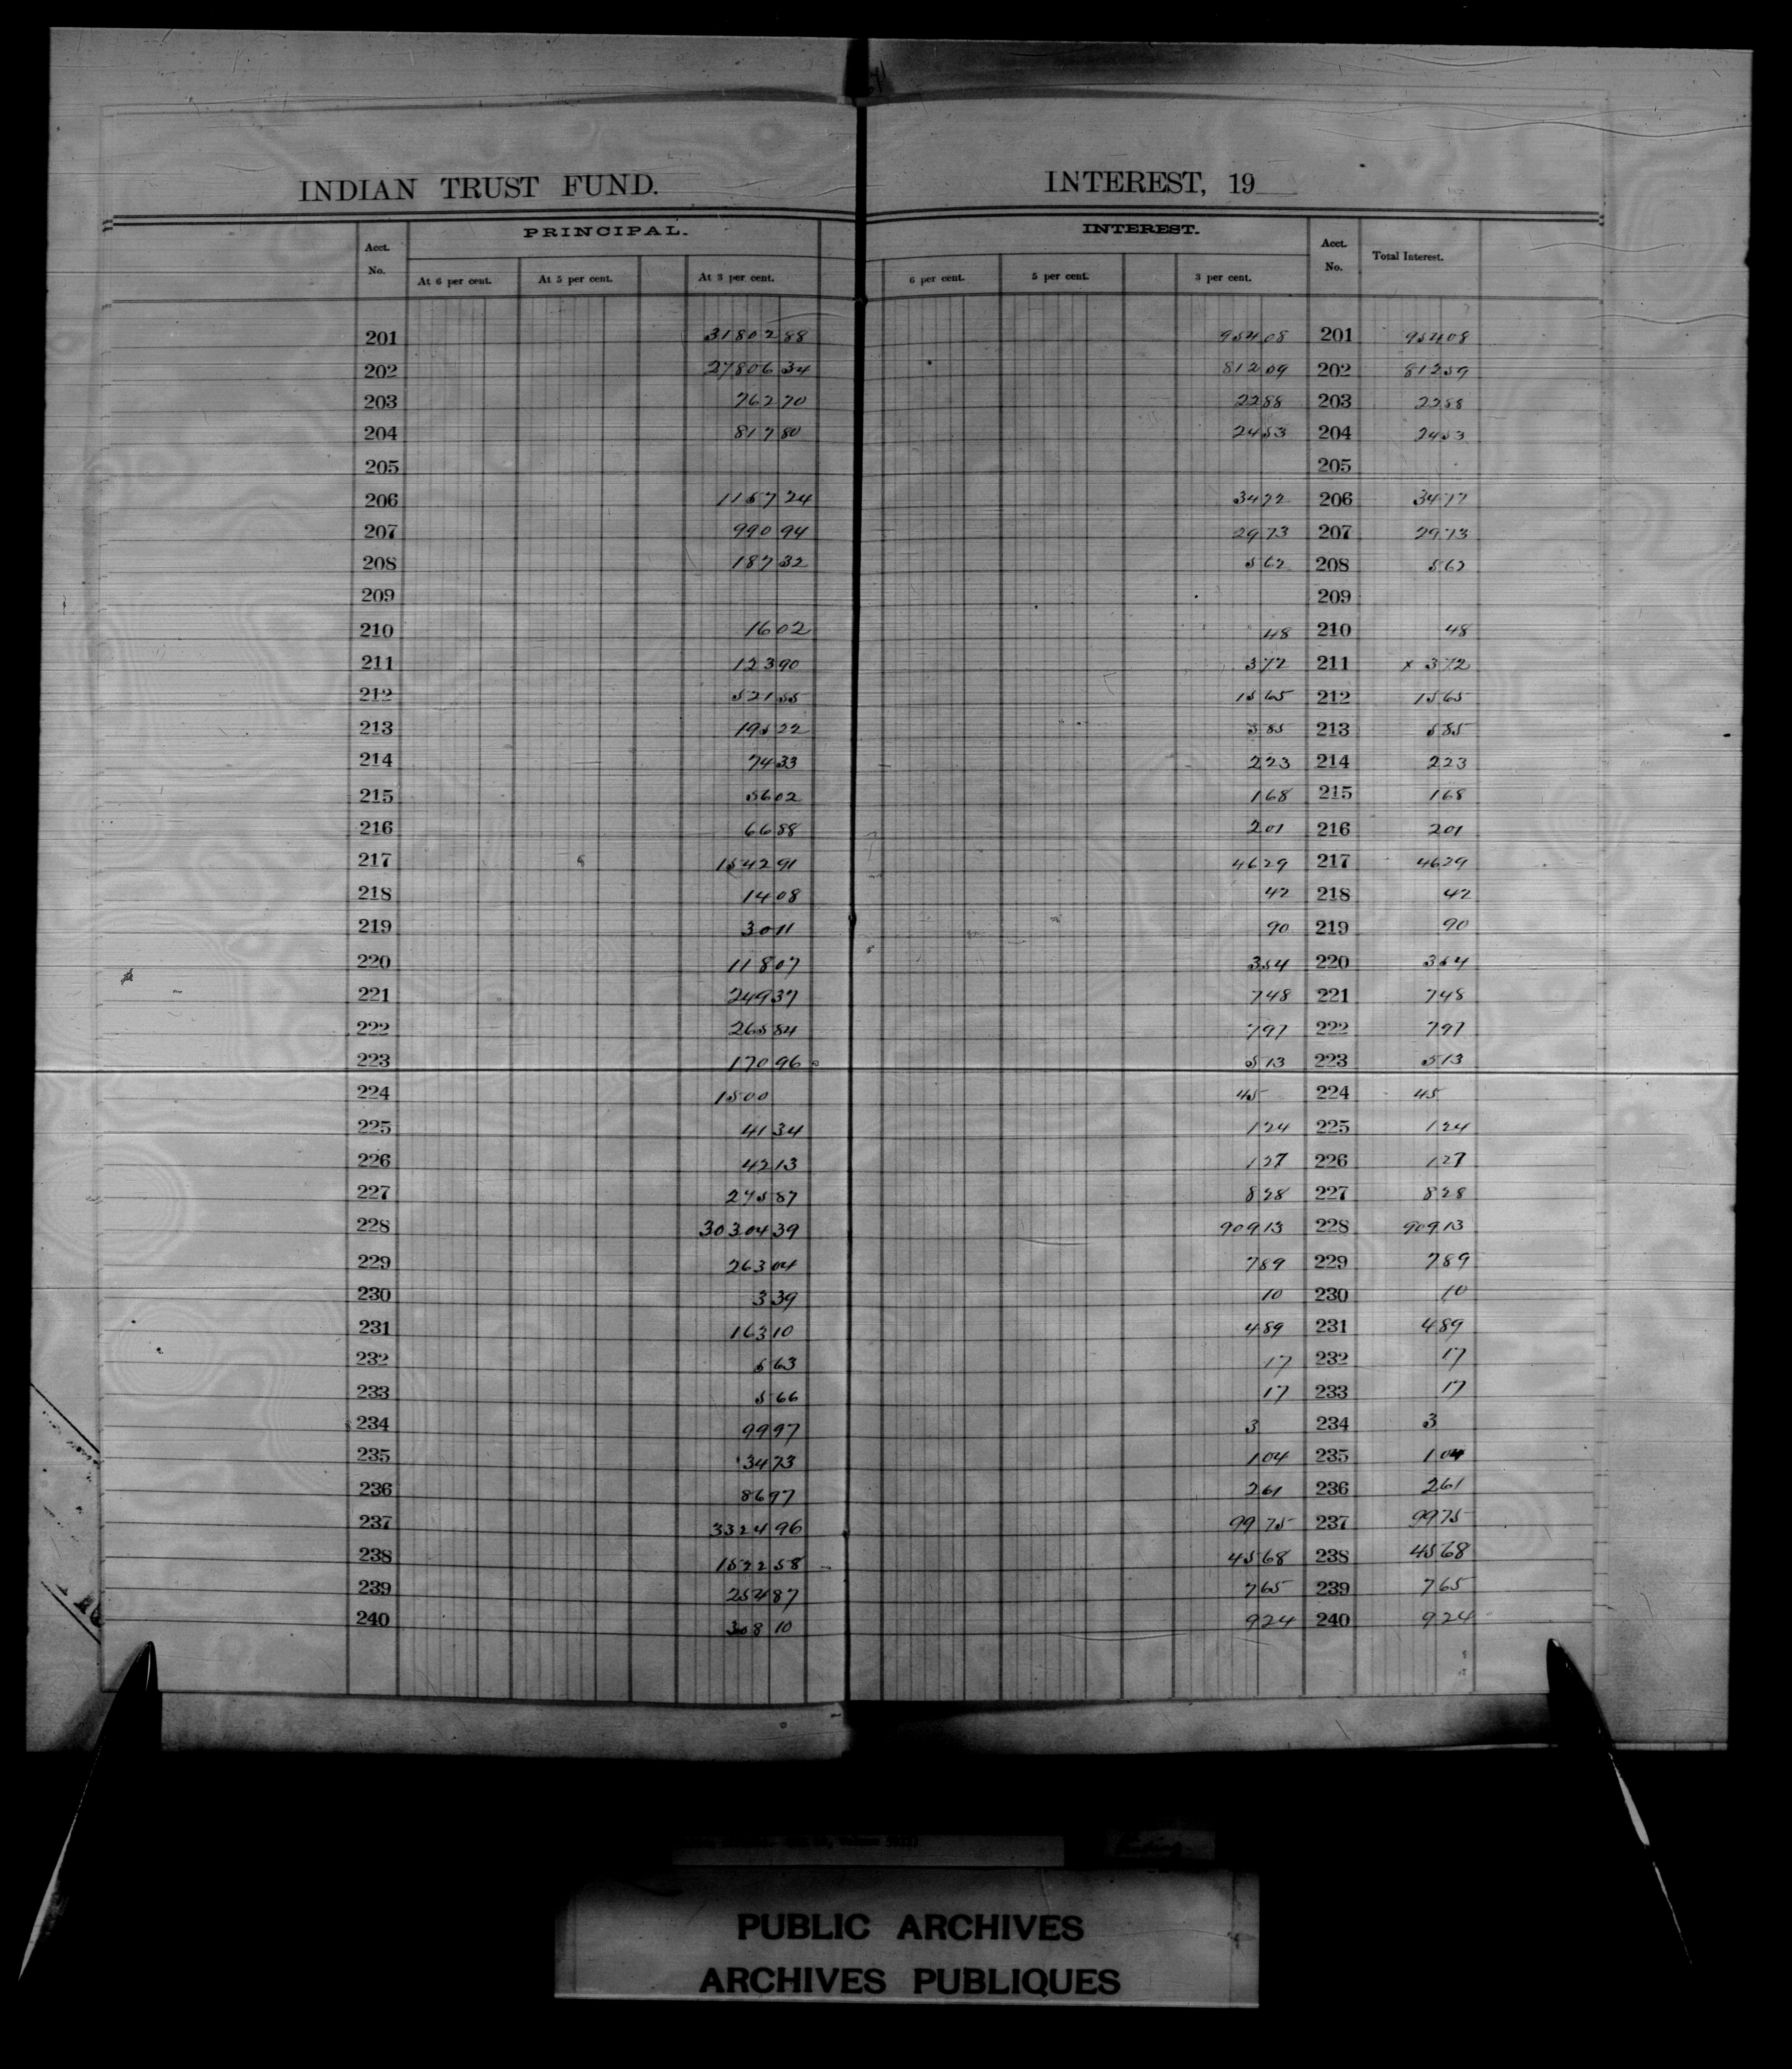 INDIAN TRUST FUND. INTEREST, 19
PRINCIPAL. INTEREST.
Acct. No. At 6 per cent. At 5 per cent. At 3 per cent. 6 per cent. 5 per cent. 3 per cent. Acct. No. Total Interest.
201 31802 88 954 08 201 954 08
202 27806 34 812 09 202 812 59
203 762 70 22 88 203 22 88
204 817 80 24 53 204 24 53
205 205
206 1157 24 34 72 206 34 72
207 990 94 29 73 207 29 73
208 187 32 5 62 208 5 62
209 209
210 16 02 48 210 48
211 123 90 3 72 211 x 3 72
212 521 55 15 65 212 15 65
213 195 22 5 85 213 5 85
214 74 33 2 23 214 2 23
215 56 02 1 68 215 1 68
216 66 88 2 01 216 2 01
217 1542 91 46 29 217 46 29
218 14 08 42 218 42
219 30 11 90 219 90
220 118 07 3 54 220 3 54
221 249 37 7 48 221 7 48
222 265 84 7 97 222 7 97
223 170 96 5 13 223 5 13
224 1500 45 224 45
225 41 34 1 24 225 1 24
226 42 13 1 27 226 1 27
227 275 87 8 28 227 8 28
228 30304 39 909 13 228 909 13
229 263 04 7 89 229 7 89
230 3 39 10 230 10
231 163 10 4 89 231 4 89
232 5 63 17 232 17
233 5 66 17 233 17
234 99 97 3 234 3
235 34 73 1 04 235 1 04
236 86 97 2 61 236 2 61
237 3324 96 99 75 237 99 75
238 1522 58 45 68 238 45 68
239 254 87 7 65 239 7 65
240 308 10 9 24 240 9 24
PUBLIC ARCHIVES
ARCHIVES PUBLIQUES